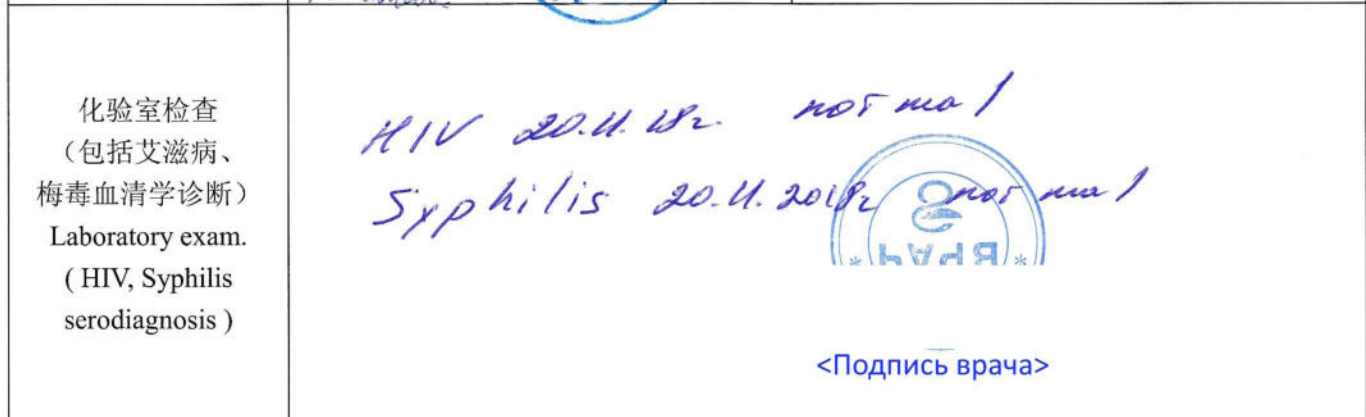 化验室检查
（包括艾滋病、
梅毒血清学诊断）
Laboratory exam.
( HIV, Syphilis
serodiagnosis )
HIV 20.11.18г. normal
Syphilis 20.11.2018г normal
* ВРАЧ *
<Подпись врача>